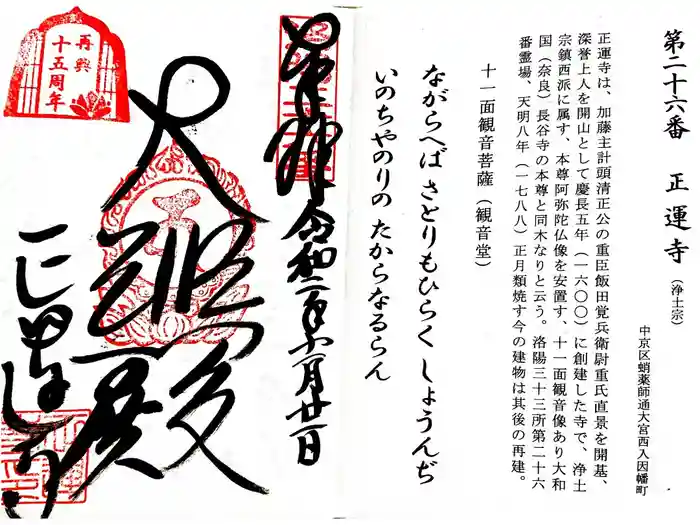 第二十六番　正運寺（浄土宗）
中京区蛸薬師通大宮西入因幡町
正運寺は、加藤主計頭清正公の重臣飯田覚兵衛尉重氏直景を開基、
深誉上人を開山として慶長五年（一六〇〇）に創建した寺で、浄土
宗鎮西派に属す、本尊阿弥陀仏像を安置す、十一面観音像あり大和
国（奈良）長谷寺の本尊と同木なりと云う。洛陽三十三所第二十六
番霊場、天明八年（一七八八）正月類焼す今の建物は其後の再建。
十一面観音菩薩（観音堂）
ながらへば さとりもひらく しょうんぢ
いのちやのりの たからなるらん
奉拝 令和二年十一月廿一日
大悲殿
正運寺
再興
十五周年